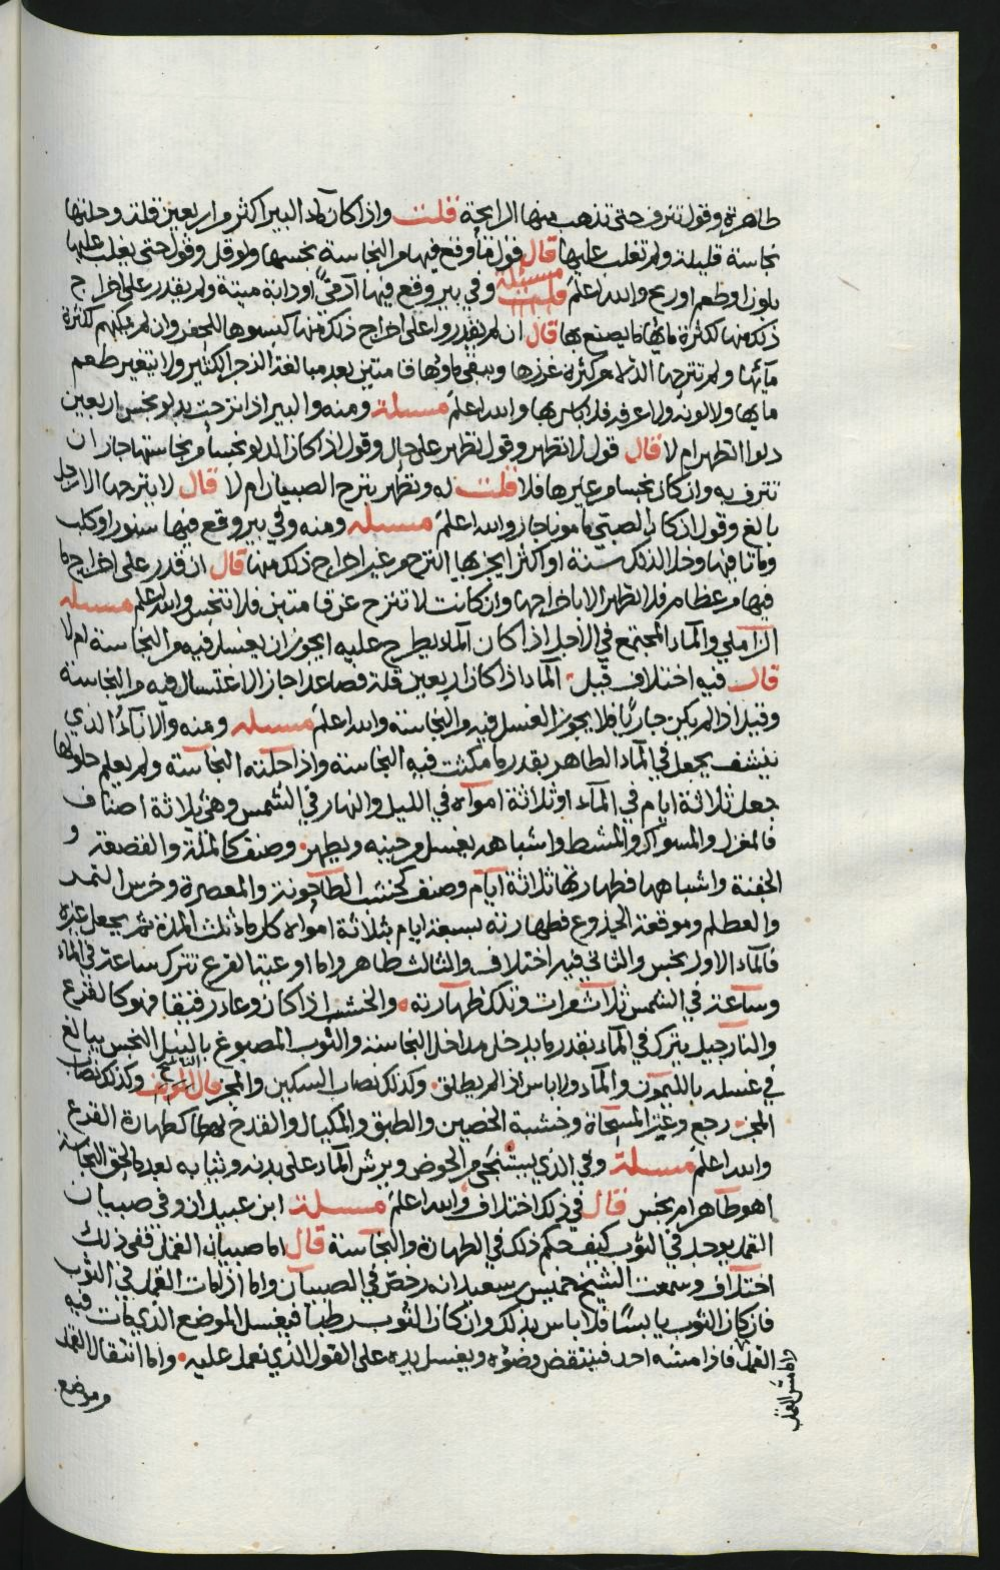 طاهرة وقول تنزف حتى تذهب منها الرايحة قلت واذا كان ماء البير اكثر من اربعين قلة وحلتها
نجاسة قليلة ولم تغلب عليها قال قول ما وقع فيها من النجاسة نجسها ولو قل وقول حتى يغلب عليها
بلون او طعم او ريح والله اعلم مسئلة قلت وفي بير وقع فيها آدمي او دابة ميتة ولم يقدر على اخراج
ذلك منها لكثرة مائها ما يصنع بها قال ان لم يقدروا على اخراج ذلك منها كبسوها للحفر وان لم يمكنهم لكثرة
مآئها ولم تنزحها الدلاء من كثرة غزرها ويبقى ماؤها قامتين بعد مبالغة النزح الكثير ولا يتغير طعم
مايها ولا لونه ولا عرفه فلا باس بها والله اعلم مسئلة ومنه والبير اذا نزحت بدلو نجس اربعين
دلوا اتطهر ام لا قال قول لا تطهر وقول تطهر على حال وقول اذا كان الدلو نجسا من نجاستها جاز ان
تنزف به وان كان نجسا من غيرها فلا قلت له وتطهر بنزح الصبيان ام لا قال لا ينزحها الا رجل
بالغ وقول اذا كان الصبي مامونا جاز والله اعلم مسئله ومنه وفي بير وقع فيها سنور او كلب
وماتا فيها وخلا لذلك سنة او اكثر ايجزيها النزح من غير اخراج ذلك منها قال ان قدر على اخراج ما
فيها من عظام فلا تطهر الا باخراجها وان كانت لا تنزح عن قامتين فلا تنجس والله اعلم مسئله
الزاملي والمآء المجتمع في الاجل اذا كان المآء يطرح عليه ايجوز ان يغسل فيه من النجاسة ام لا
قال فيه اختلاف قيل المآء اذا كان اربعين قلة فصاعدا جاز الاغتسال فيه من النجاسة
وقيل اذا لم يكن جاريا فلا يجوز الغسل فيه من النجاسة والله اعلم مسئله ومنه والاناء الذي
ينشف يجعل في المآء الطاهر بقدر ما مكثت فيه النجاسة واذا حلته النجاسة ولم يعلم حلولها
جعل ثلاثة ايام في المآء او ثلاثة امواه في الليل والنهار في الشمس وهي ثلاثة اصناف
فالمغزل والمسواك والمشط واشباهه يغسل من حينه ويطهر وصنف كالملة والقصعة و
الجفنة واشباهها فطهارتها ثلاثة ايام وصنف كخشب الطاحونة والمعصرة وخرس التمر
والعظلم وموقعة الجذوع فطهارته بسبعة ايام بثلاثة امواه كل ماء ثلث المدة ثم يجعل غيره
فالماء الاول نجس والثاني فيه اختلاف والثالث طاهر واما اوعية القرع تترك ساعة في الماء
وساعة في الشمس ثلاث مرات وتلك طهارته والخشب اذا كان وعاء رقيقا فهو كالقرع
والنارجيل يترك في المآء بقدر ما يدخل مداخل النجاسة والثوب المصبوغ بالنيل النجس يبالغ
في غسله بالليمون والمآء ولا باس اذا لم يطلق وكذلك نصاب السكين والمجز قال المولف الناسخ وكذلك نصاب
المجز رجع وعيز المسحاة وخشبة الخصين والطبق والمكيال والقدح طهارتها كطهارة القرع
والله اعلم مسئلة وفي الذي يستنجي من الحوض ويرش المآء على بدنه وثيابه بعد ما لحق النجاسة
اهو طاهر ام نجس قال في ذلك اختلاف والله اعلم مسئلة ابن عبيدان وفي صبيان
القمل يوجد في الثوب كيف حكم ذلك في الطهارة والنجاسة قال اما صيبان القمل ففي ذلك
اختلاف وسمعت الشيخ خميس بن سعيد انه رخص في الصيبان واما اذا مات القمل في الثوب
فان كان الثوب يابسا فلا باس بذلك وان كان الثوب رطبا فيغسل الموضع الذي مات فيه
القمل فاذا مسه احد فينتقض وضؤه ويغسل يده على القول الذي نعمل عليه واما انتقال القمل
من موضع
واما مس القمل